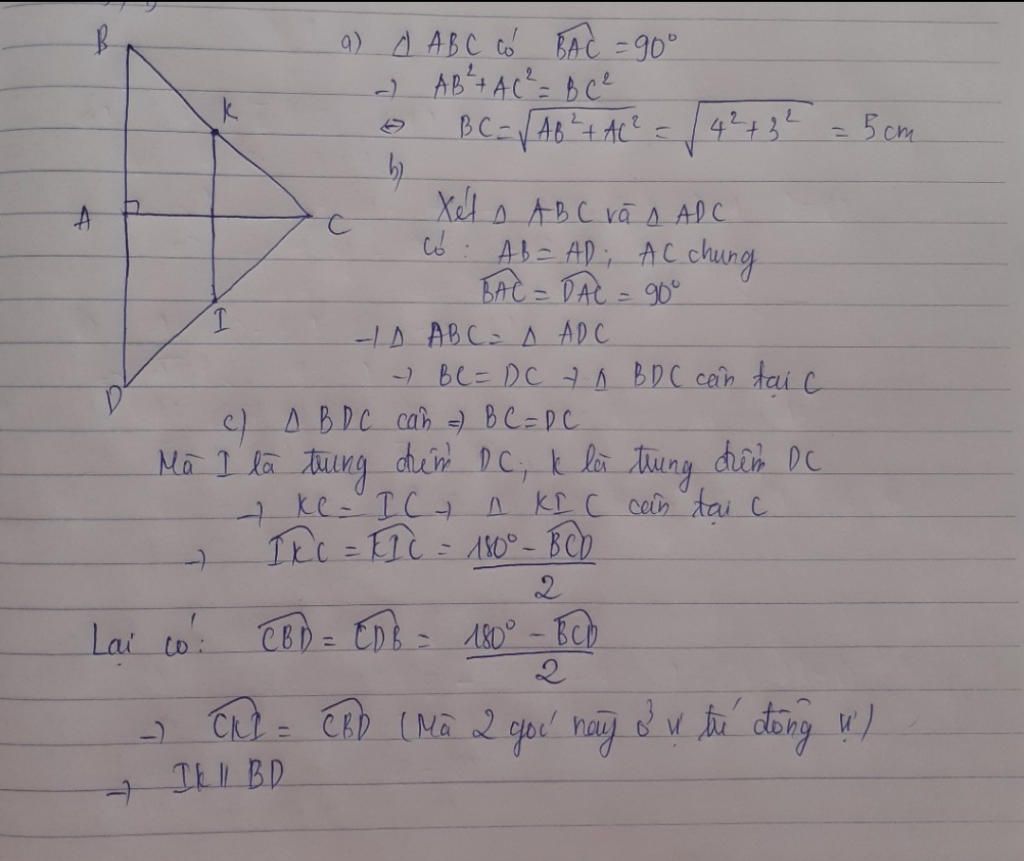 B
K
A
C
I
D
a) Δ ABC có \widehat{BAC} = 90°
→ AB² + AC² = BC²
⇔ BC = √(AB² + AC²) = √(4² + 3²) = 5cm
b)
Xét Δ ABC và Δ ADC
Có : AB = AD ; AC chung
\widehat{BAC} = \widehat{DAC} = 90°
→ Δ ABC = Δ ADC
→ BC = DC → Δ BDC cân tại C
c) Δ BDC cân ⇒ BC = DC
Mà I là trung điểm DC ; K là trung điểm DC
→ KC = IC → Δ KIC cân tại C
→ \widehat{IKC} = \widehat{KIC} = (180° - \widehat{BCD})/2
Lại có : \widehat{CBD} = \widehat{CDB} = (180° - \widehat{BCD})/2
→ \widehat{CKI} = \widehat{CBD} (Mà 2 góc này ở vị trí đồng vị)
→ IK // BD